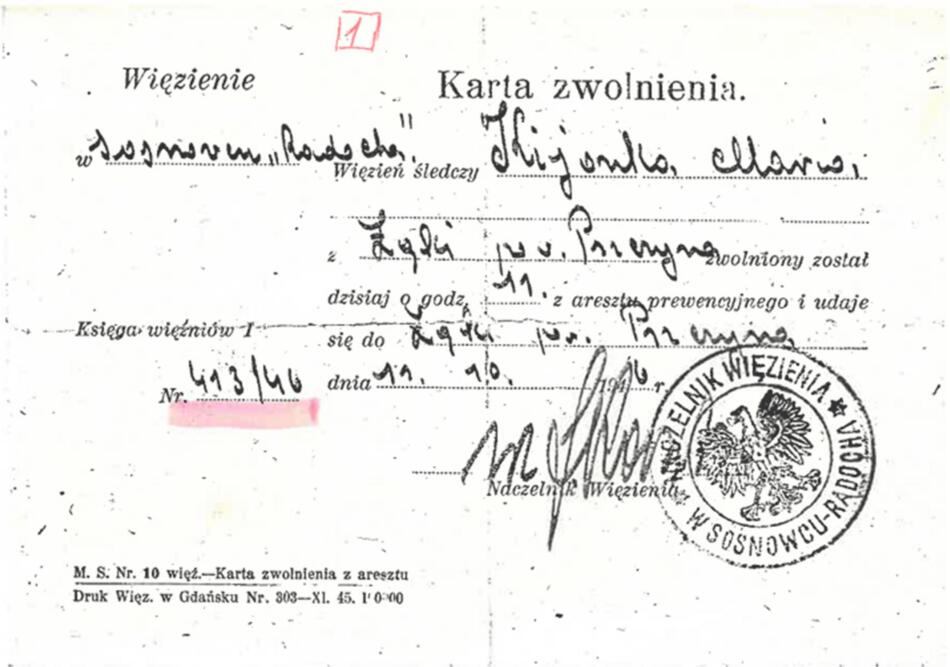 1
Więzienie
Karta zwolnienia.
w Sosnovcu „Radocha"
Więzień śledczy Kijonka Maria,
z Łąki pow. Pszczyna zwolniony został
dzisiaj o godz. 11. z aresztu prewencyjnego i udaje
Księga więźniów I
się do Łąki pow. Pszczyna
Nr. 413/46
dnia 11. 10. 1946 r.
Naczelnik Więzienia
NACZELNIK WIĘZIENIA W SOSNOWCU-RADOCHA
M. S. Nr. 10 więź.—Karta zwolnienia z aresztu
Druk Więz. w Gdańsku Nr. 303—XI. 45.